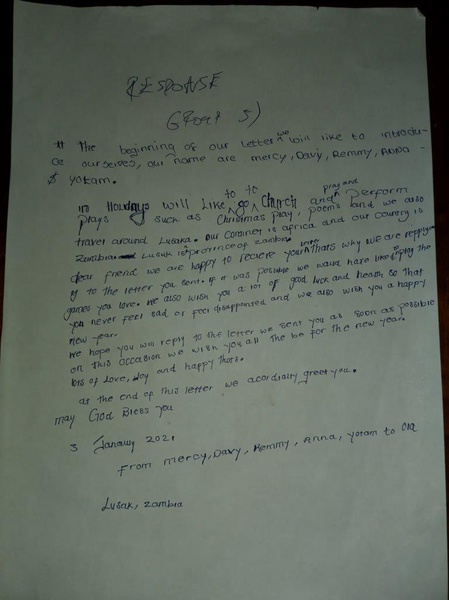 RESPONSE
Group 5)
At the beginning of our letter we will like to introdu-
ce ourseives, our name are mercy, Davy, Remmy, Anna -
$ Yotam.
in Holidays will like to go to Church and pray and Perform
plays such as Christmas play, poems and we also
travel around Lusaka. Our Continet is africa and our country is
Zambia Lusak is province of zambia
dear friend we are happy to recieve your letter thats why we are replyin
g to the letter you sent. if it was possible we would have liked to play the
games you love. we also wish you a lot of good luck and health so that
you never feel sad or feel disappointed and we also wish you a happy
new year.
we hope you will reply to the letter we sent you as soon as possible
on this occasion we wish you all the be for the new year.
lots of love, Joy and happy thots.
as the end of this letter we acordially greet you.
may God Bless you
3 January 202.
From mercy, Davy, Remmy, Anna, yotam to
Lusak, Zambia